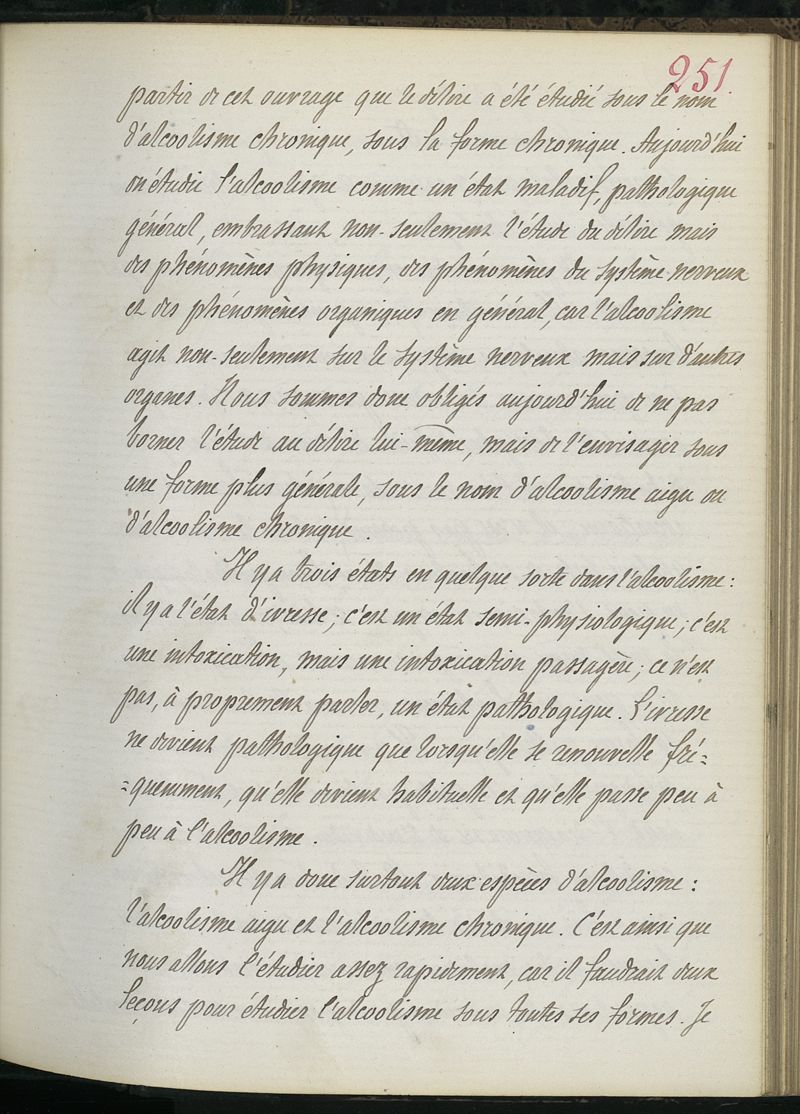 251.
partir de cet ouvrage que le délire a été étudié sous le nom
d'alcoolisme chronique, sous la forme chronique. Aujourd'hui
on étudie l'alcoolisme comme un état maladif, pathologique
général, embrassant non-seulement l'étude du délire mais
des phénomènes physiques, des phénomènes du système nerveux
et des phénomènes organiques en général, car l'alcoolisme
agit non-seulement sur le système nerveux mais sur d'autres
organes. Nous sommes donc obligés aujourd'hui de ne pas
borner l'étude au délire lui-même, mais de l'envisager sous
une forme plus générale, sous le nom d'alcoolisme aigu ou
d'alcoolisme chronique.
Il y a trois états en quelque sorte dans l'alcoolisme:
il y a l'état d'ivresse; c'est un état semi-physiologique; c'est
une intoxication, mais une intoxication passagère; ce n'est
pas, à proprement parler, un état pathologique. L'ivresse
ne devient pathologique que lorsqu'elle se renouvelle fré=
=quemment, qu'elle devient habituelle et qu'elle passe peu à
peu à l'alcoolisme.
Il y a donc surtout deux espèces d'alcoolisme:
l'alcoolisme aigu et l'alcoolisme chronique. C'est ainsi que
nous allons l'étudier assez rapidement, car il faudrait deux
leçons pour étudier l'alcoolisme sous toutes ses formes. Je